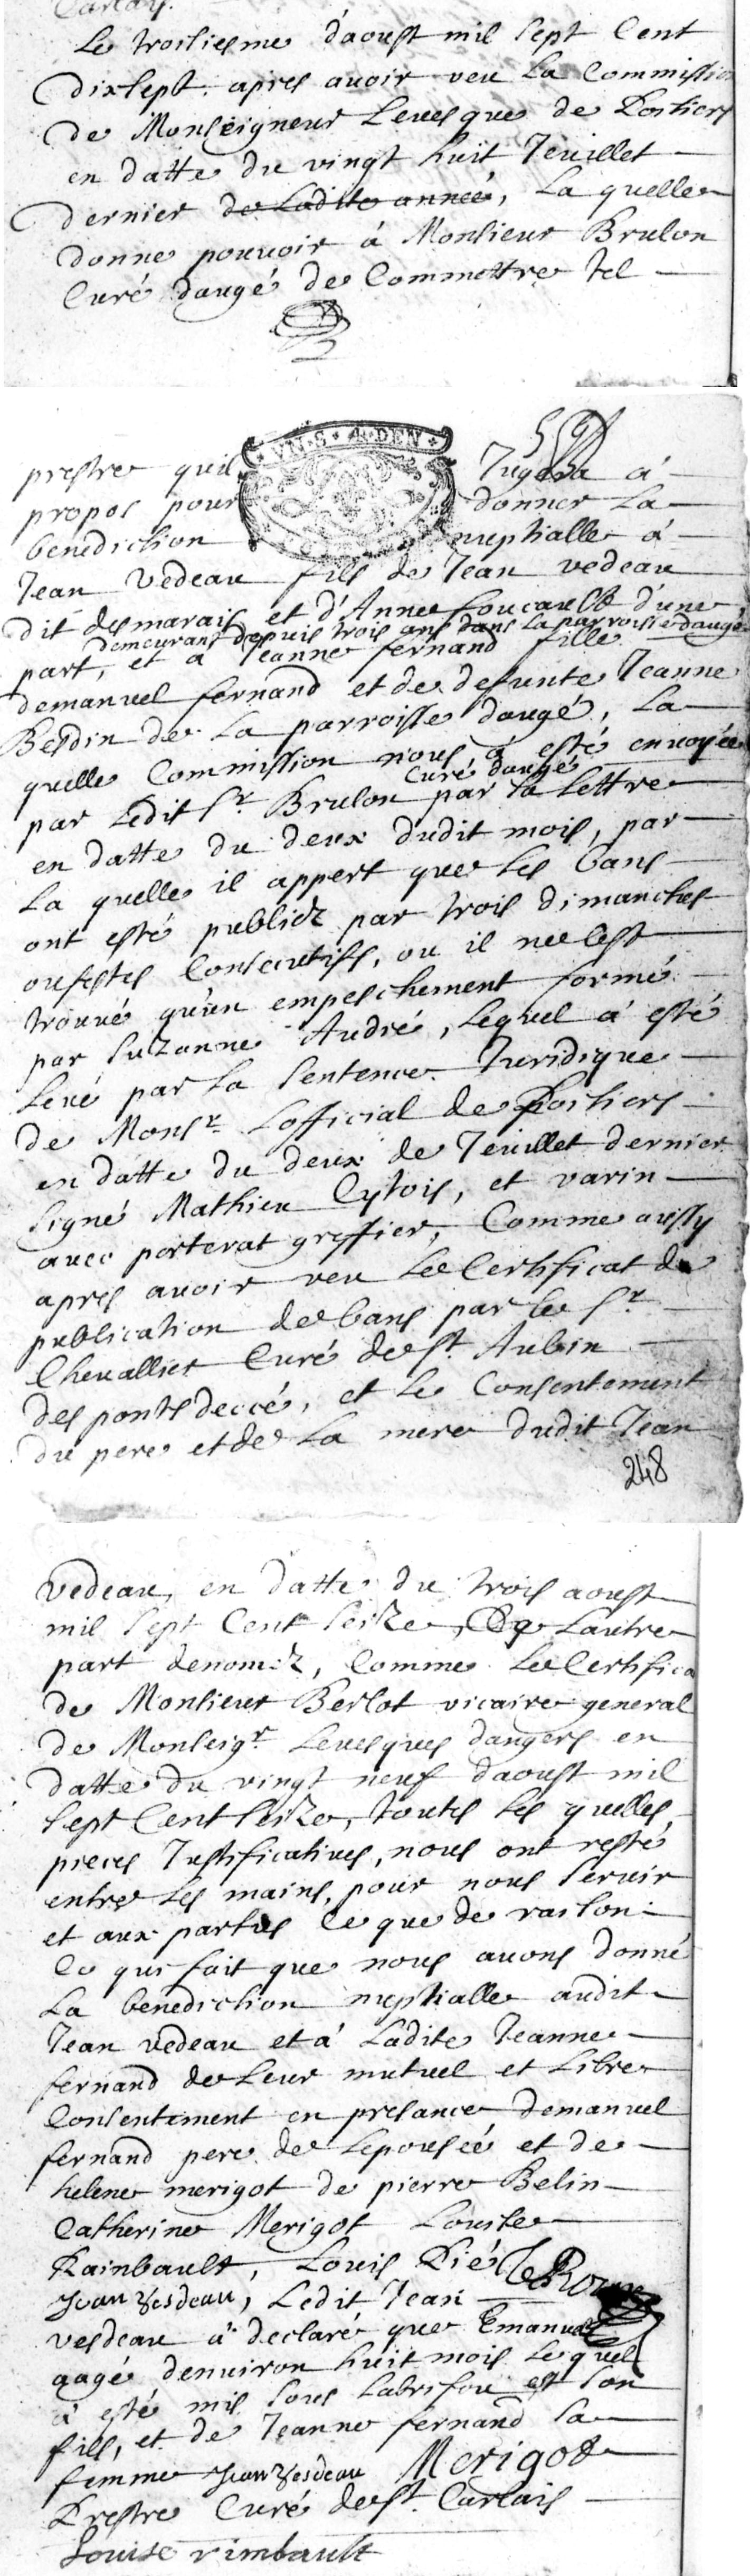 Le troisiesme d'aoust mil sept Cent
dixsept. apres avoir veu La Commission
de Monseigneur Levesque de Poitiers
en datte du vingt huit Jeuillet
dernier de Ladite année, La quelle
donne pouvoir á Monsieur Brulon
Curé daugé de Commettre tel
prestre quil Jugera á
propos pour donner La
benediction nuptialle á
Jean Vedeau fils de Jean vedeau
dit desmarais et d'Anne Foucault d'une
demeurant depuis trois ans dans La parroisse daugé
part, et a Jeanne fernand fille
demanuel fernand et de defunte Jeanne
Besdin de La parroisse daugé, La
quelle Commission nous á esté envoyée
Curé daugé
par Ledit Sr. Brulon par sa Lettre
en datte du deux dudit mois, par
La quelle il appert que les bans
ont esté publiéz par trois dimanches
oufestes Consecutifs, ou il ne sest
trouvé qu'un empeschement formé
par Suzanne André, Lequel á esté
Levé par La Sentence Juridique
de Monsr. Lofficial de Poitiers
en datte du deux de Jeuillet dernier
signé Mathieu Cytois, et varin
avec porterat greffier, Comme aussy
apres avoir veu Le Certificat de
publication de bans par le Sr.
Chevallier Curé de St. Aubin
des ponts deccé, et Le Consentement
du pere et de La mere dudit Jean
248
vedeau, en datte du trois aoust
mil sept Cent seize, De Lautre
part denoméz, Comme Le Certifica
de Monsieur Berlot vicaire general
de Monseigr. Levesques dangers en
datte du vingt neuf daoust mil
sept Cent seize, toutes les quelles
pieces Justificatives, nous ont resté
entre Les mains, pour nous servir
et aux parties Ce que de raison.
Ce qui fait que nous avons donné
La benediction nuptialle audit
Jean vedeau et á Ladite Jeanne
fernand de Leur mutuel et Libre
Consentement en presance demanuel
fernand pere de Lepousée et de
helene merigot de pierre Belin
Catherine Merigot Louise
Rainbault, Louis Pié
Jean Vesdeau, Ledit Jean
vesdeau á declaré que Emanuel
aagé denviron huit mois Lequel
á esté mis sous Labrifou est son
fils, et de Jeanne fernand sa
femme Jean Vesdeau Merigot
Prestre Curé de St. Carlais
Louise rimbault